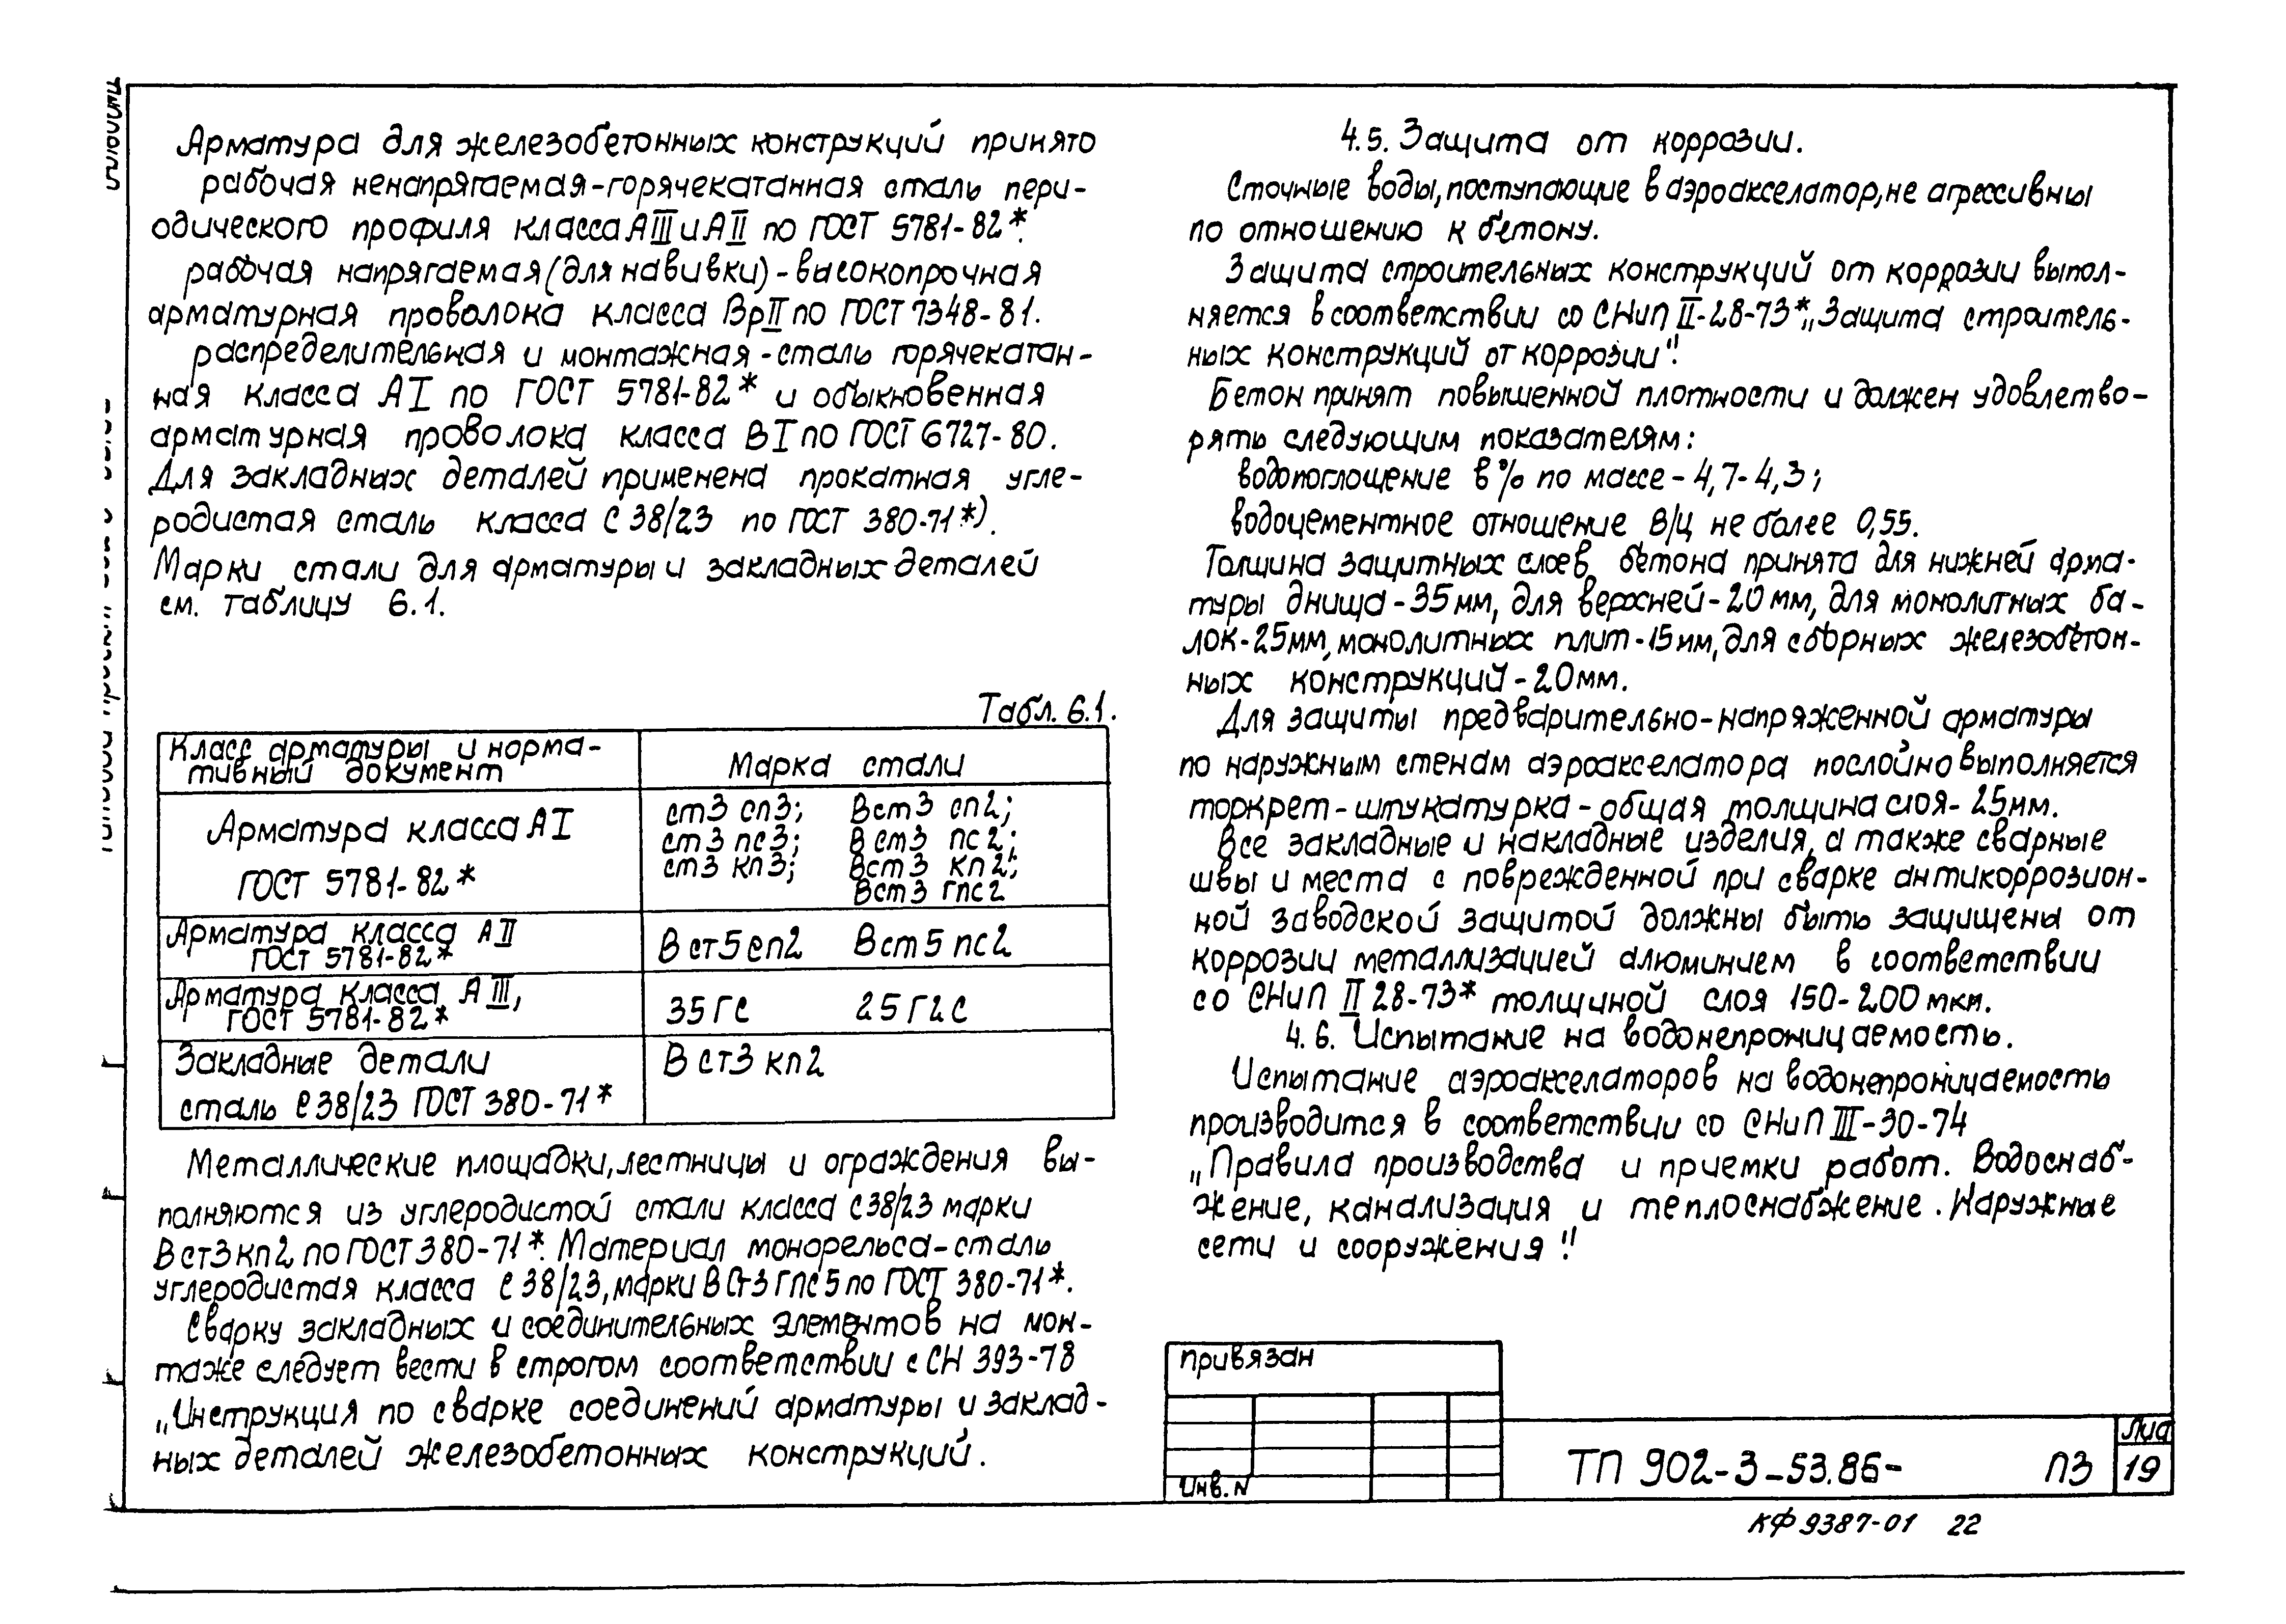 Арматура для железобетонных конструкций принято
рабочая ненапрягаемая-горячекатанная сталь пери-
одического профиля класса АIII и АII по ГОСТ 5781-82*.
рабочая напрягаемая (для навивки)-высокопрочная
арматурная проволока класса ВрII по ГОСТ 7348-81.
распределительная и монтажная-сталь горячекатан-
ная класса АI по ГОСТ 5781-82* и обыкновенная
арматурная проволока класса ВI по ГОСТ 6727-80.
Для закладных деталей применена прокатная угле-
родистая сталь класса С 38/23 по ГОСТ 380-71*).
Марки стали для арматуры и закладных деталей
см. таблицу 6.1.
Табл. 6.1.
Класс арматуры и норма-
тивный документ
Марка стали
Арматура класса АI
ГОСТ 5781-82*
ст3 сп3; Вст3 сп2;
ст3 пс3; Вст3 пс2;
ст3 кп3; Вст3 кп2;
Вст3 Гпс2
Арматура класса АII
ГОСТ 5781-82*
Вст5сп2 Вст5пс2
Арматура класса АIII,
ГОСТ 5781-82*
35ГС 25Г2С
Закладные детали
сталь С38/23 ГОСТ 380-71*
Вст3кп2
Металлические площадки, лестницы и ограждения вы-
полняются из углеродистой стали класса С38/23 марки
Вст3кп2 по ГОСТ 380-71*. Материал монорельса-сталь
углеродистая класса С 38/23, марки ВСт3Гпс5 по ГОСТ 380-71*.
Сварку закладных и соединительных элементов на мон-
таже следует вести в строгом соответствии с СН 393-78
„Инструкция по сварке соединений арматуры и заклад-
ных деталей железобетонных конструкций.
4.5. Защита от коррозии.
Сточные воды, поступающие в аэроакселатор, не агрессивны
по отношению к бетону.
Защита строительных конструкций от коррозии выпол-
няется в соответствии со СНиП II-28-73* „Защита строитель-
ных конструкций от коррозии".
Бетон принят повышенной плотности и должен удовлетво-
рять следующим показателям:
водопоглощение в % по массе - 4,7-4,3;
водоцементное отношение В/Ц не более 0,55.
Толщина защитных слоев бетона принята для нижней арма-
туры днища-35мм, для верхней-20мм, для монолитных ба-
лок-25мм, монолитных плит-15мм, для сборных железобетон-
ных конструкций-20мм.
Для защиты предварительно-напряженной арматуры
по наружным стенам аэроакселатора послойно выполняется
торкрет-штукатурка-общая толщина слоя-25мм.
Все закладные и накладные изделия, а также сварные
швы и места с поврежденной при сварке антикоррозион-
ной заводской защитой должны быть защищены от
коррозии металлизацией алюминием в соответствии
со СНиП II 28-73* толщиной слоя 150-200 мкм.
4.6. Испытание на водонепроницаемость.
Испытание аэроакселаторов на водонепроницаемость
производится в соответствии со СНиП III-30-74
„Правила производства и приемки работ. Водоснаб-
жение, канализация и теплоснабжение. Наружные
сети и сооружения".
привязан
Инв. N
ТП 902-3-53.86- ПЗ
19
КФ 9387-01 22